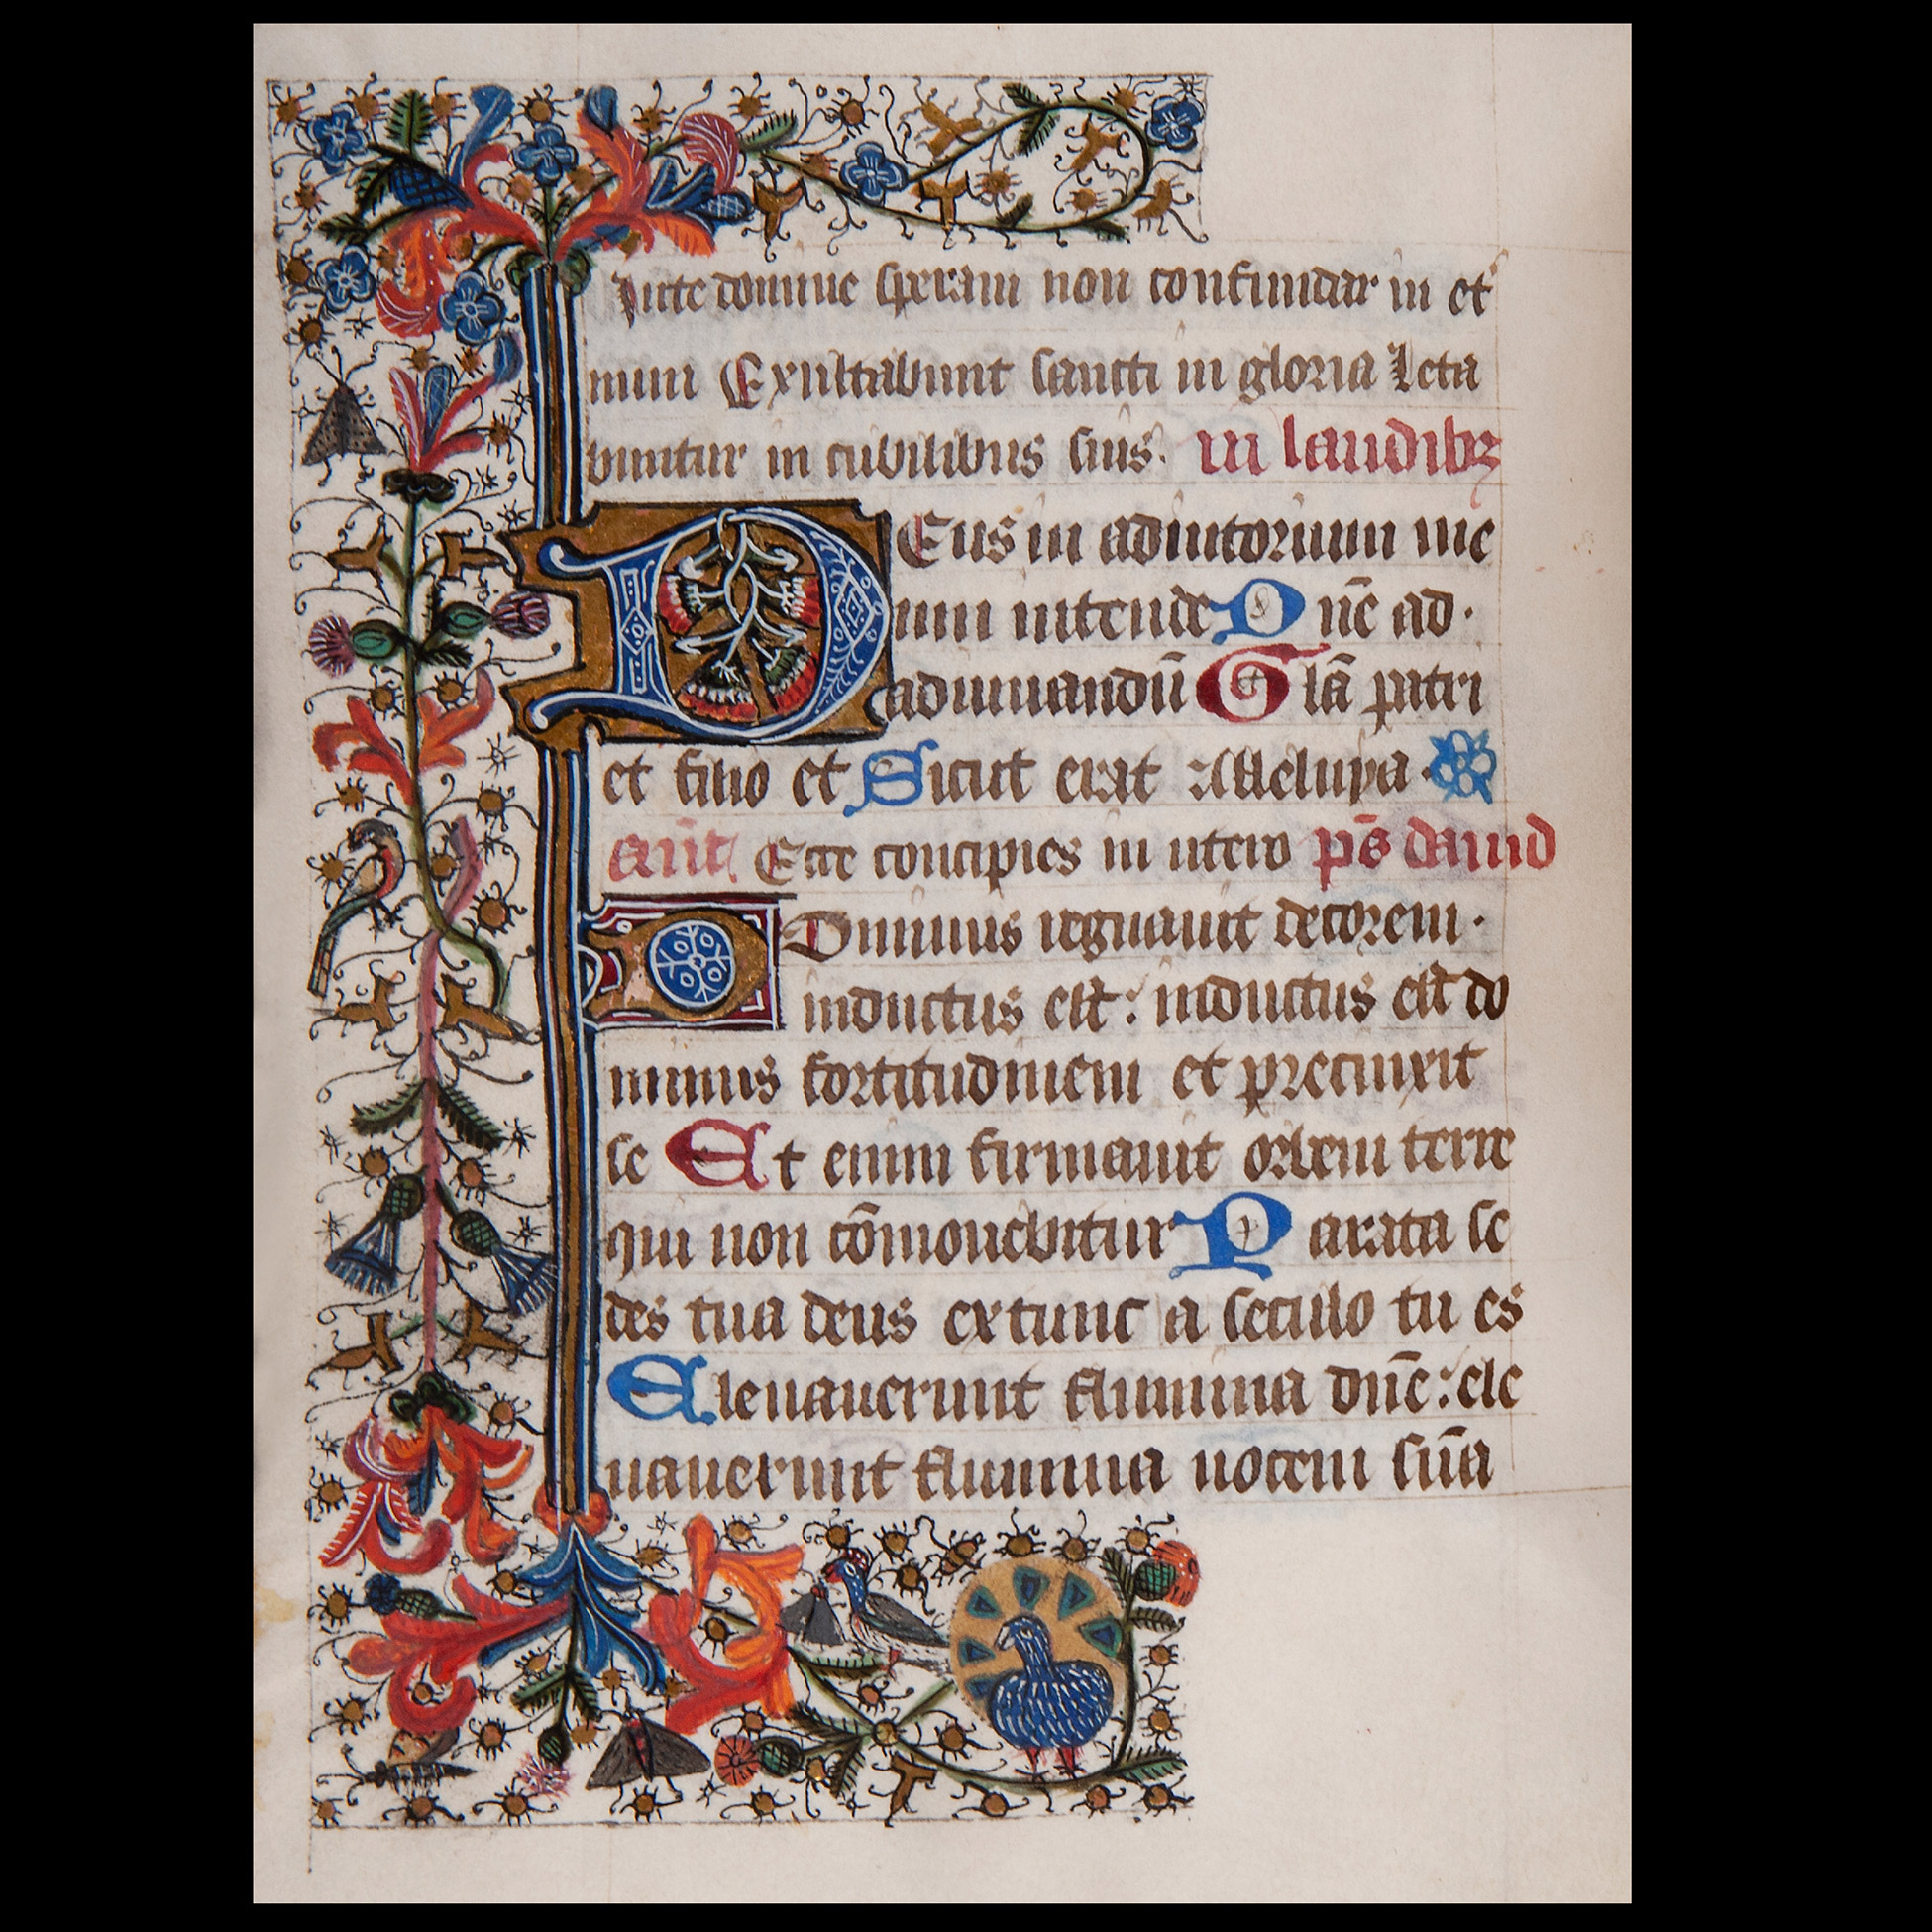 In te domine speraui non confundar in et
num Exultabunt sancti in gloria leta
buntur in cubilibus suis. in laudibꝫ
DEus in adiutorium me
um intende Dn̄e ad.
adiuuandū Gl̄a patri
et filio et Sicut erat Alleluya
an̄t Ecce concipies in utero ps̄ dauid
DOminus regnauit decorem.
inductus est: inductus est do
minus fortitudinem et precinxit
se Et enim firmauit orbem terre
qui non cōmouebitur Parata se
des tua deus ex tunc a seculo tu es
Eleuauerunt flumina dn̄e: ele
uauerunt flumina uocem sūa